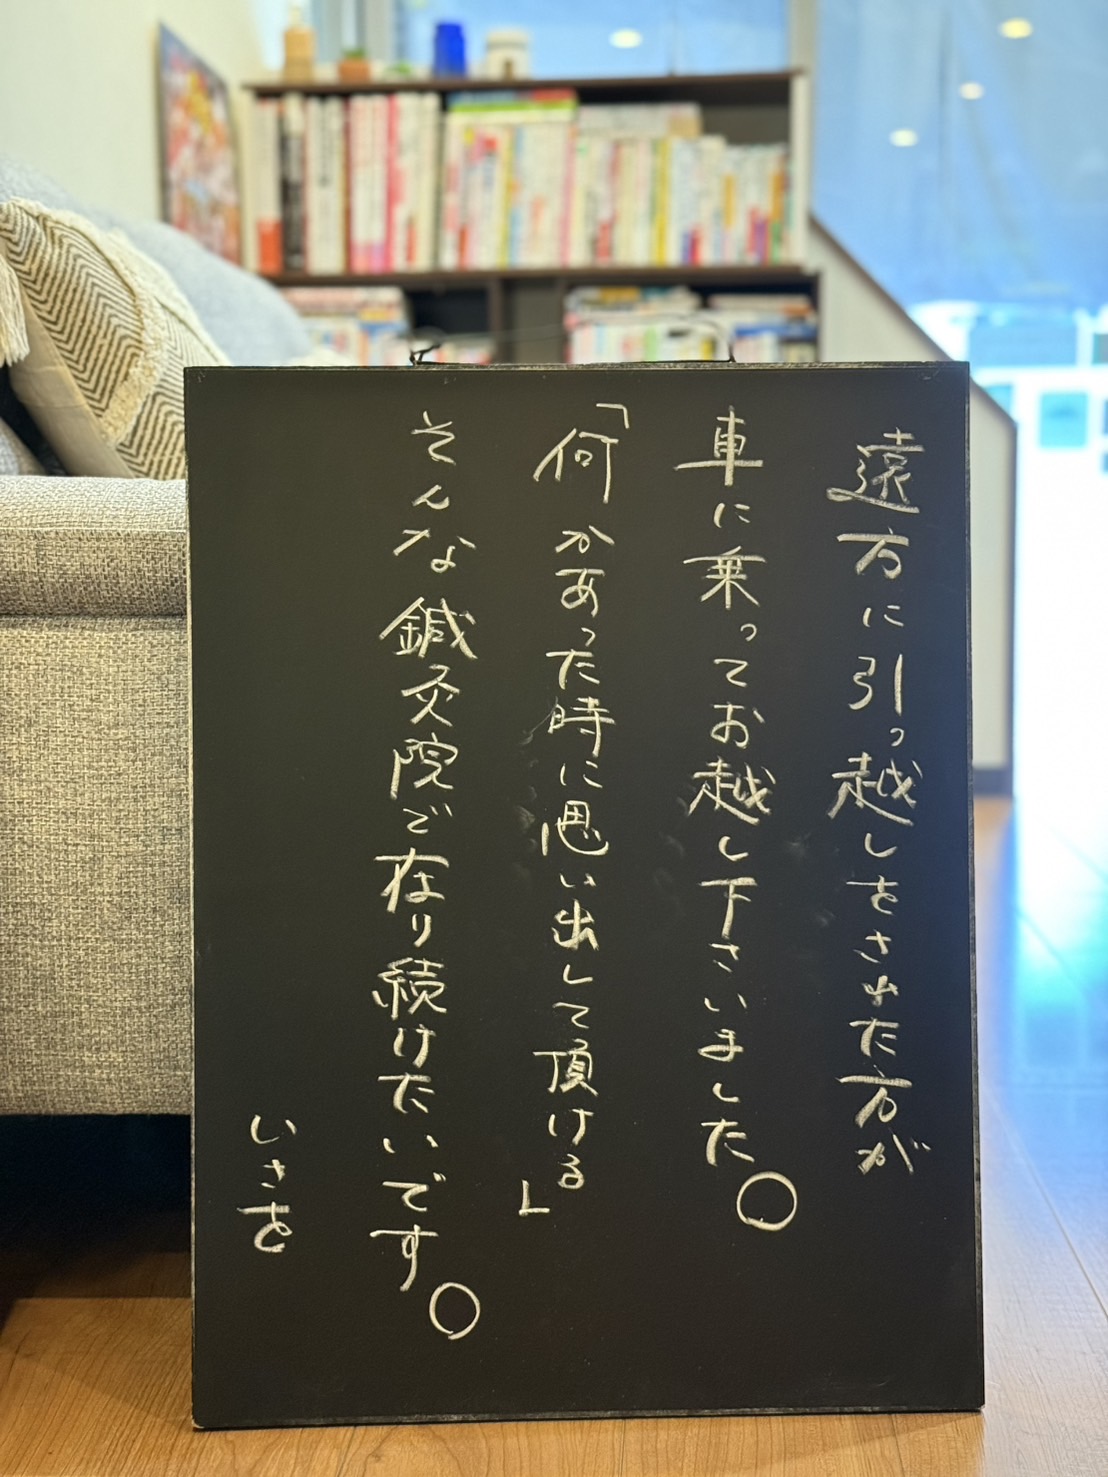 遠方に引っ越しをされた方が
車に乗ってお越し下さいました。
「何かあった時に思い出して頂ける」
そんな鍼灸院で在り続けたいです。
いさを